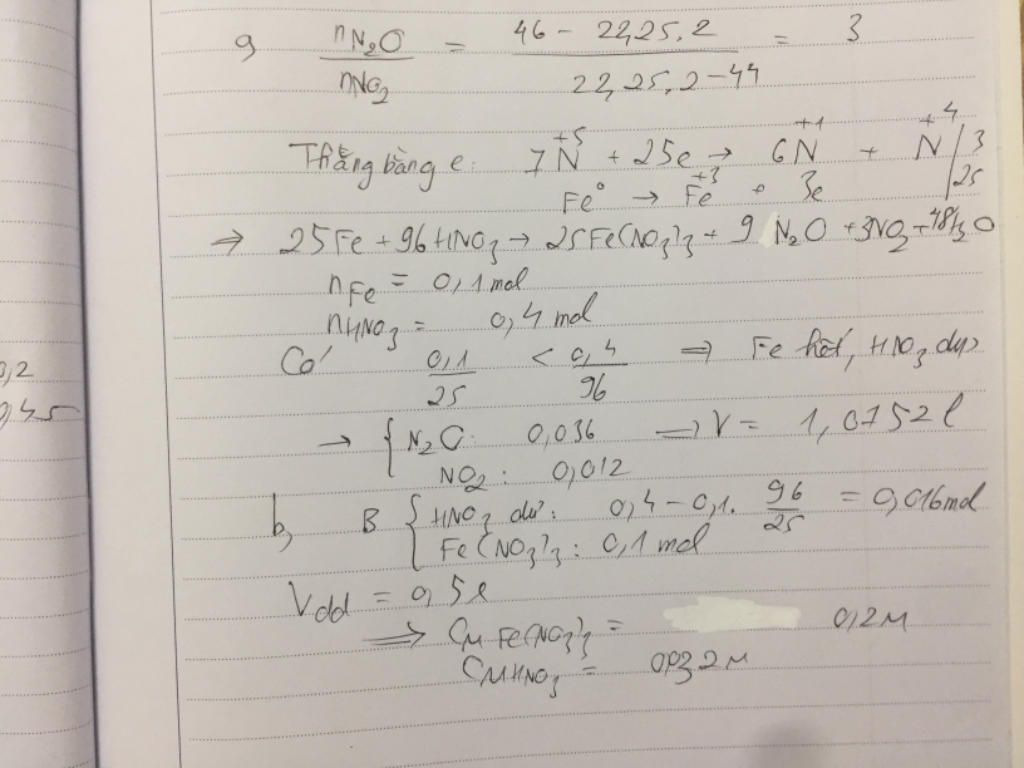 a, nN₂O / nNO₂ = (46 - 22,25.2) / (22,25.2 - 44) = 3
Thăng bằng e: 7N⁺⁵ + 25e → 6N⁺¹ + N⁺⁴ | 3
Fe⁰ → Fe⁺³ + 3e | 25
⇒ 25Fe + 96HNO₃ → 25Fe(NO₃)₃ + 9 N₂O + 3NO₂ + 48H₂O
nFe = 0,1 mol
nHNO₃ = 0,4 mol
Có 0,1/25 < 0,4/96 ⇒ Fe hết, HNO₃ dư
→ { N₂O: 0,036 ⇒ V = 1,0752 l
NO₂: 0,012
b, B { HNO₃ dư: 0,4 - 0,1. 96/25 = 0,016 mol
Fe(NO₃)₃: 0,1 mol
Vdd = 0,5 l
⇒ CM Fe(NO₃)₃ = 0,2M
CM HNO₃ = 0,032M
0,2
0,45